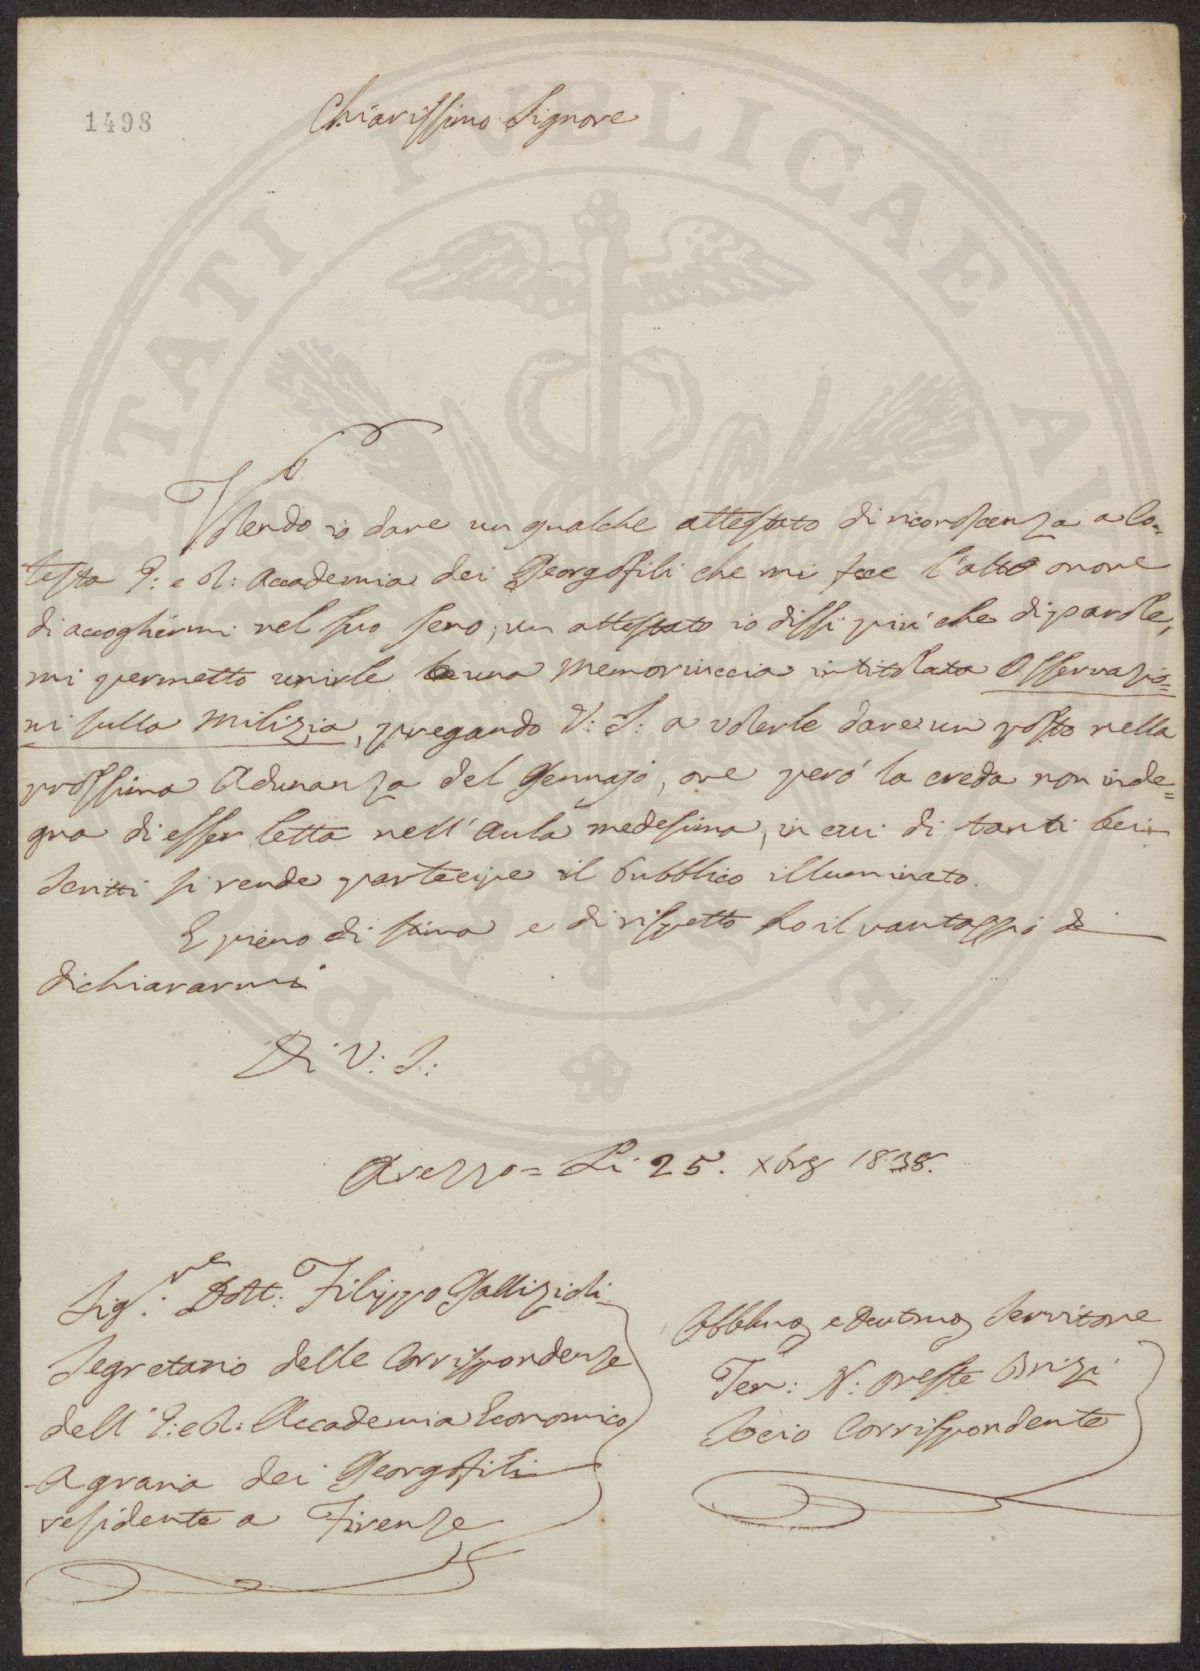 1498
Chiarissimo Signore
Volendo io dare un qualche attestato di riconoscenza a Co=
testa I: e R: Accademia dei Georgofili che mi fece l'alto onore
di accogliermi nel suo seno, un attestato io dissi più che di parole,
mi permetto unirle una Memoriuccia intitolata Osservazio=
ni sulla Milizia, pregando V: S: a volerle dare un posto nella
prossima Adunanza del Gennajo, ove però la creda non inde=
gna di esser letta nell'Aula medesima, in cui di tanti bei
scritti si rende partecipe il Pubblico illuminato.
E pieno di stima e di rispetto ho il vantaggio di
dichiararmi
Di V: S:
Arezzo = Li 25. Xbre 1838.
Sig.re Dott: Filippo Gallizioli
Segretario delle Corrispondenze
dell'I: e R: Accademia Economico
Agraria dei Georgofili
residente a Firenze
Obblmo e Devotmo Servitore
Ten: N: Oreste Brizi
Socio Corrispondente
PROSPERITATI PUBLICAE AUGENDAE